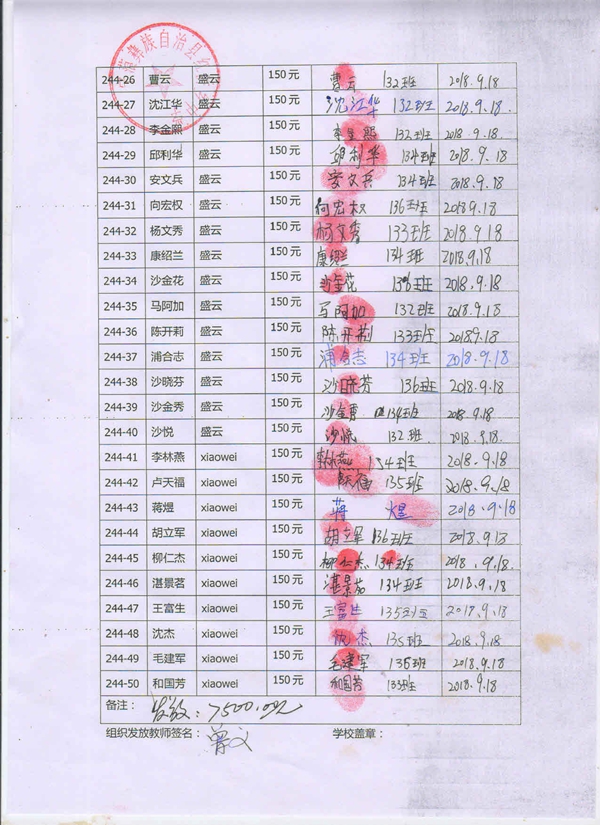 彝族自治县
244-26 曹云 盛云 150元 曹云 132班 2018.9.18
244-27 沈江华 盛云 150元 沈江华 132班 2018.9.18.
244-28 李金熙 盛云 150元 李金熙 132班 2018.9.18
244-29 邱利华 盛云 150元 邱利华 134班 2018.9.18
244-30 安文兵 盛云 150元 安文兵 134班 2018.9.18
244-31 向宏权 盛云 150元 向宏权 136班 2018.9.18
244-32 杨文秀 盛云 150元 杨文秀 133班 2018.9.18
244-33 康绍兰 盛云 150元 康绍兰 134班 2018.9.18
244-34 沙金花 盛云 150元 沙金花 136班 2018.9.18
244-35 马阿加 盛云 150元 马阿加 132班 2018.9.18
244-36 陈开莉 盛云 150元 陈开莉 133班 2018.9.18
244-37 浦合志 盛云 150元 浦合志 134班 2018.9.18
244-38 沙晓芬 盛云 150元 沙晓芬 136班 2018.9.18
244-39 沙金秀 盛云 150元 沙金秀 134班 2018.9.18
244-40 沙悦 盛云 150元 沙悦 132班 2018.9.18
244-41 李林燕 xiaowei 150元 李林燕 134班 2018.9.18
244-42 卢天福 xiaowei 150元 135班 2018.9.18
244-43 蒋煜 xiaowei 150元 蒋煜 2018.9.18
244-44 胡立军 xiaowei 150元 胡立军 136班 2018.9.18
244-45 柳仁杰 xiaowei 150元 柳仁杰 134班 2018.9.18.
244-46 湛景茗 xiaowei 150元 湛景茗 134班 2018.9.18
244-47 王富生 xiaowei 150元 王富生 135班 2018.9.18
244-48 沈杰 xiaowei 150元 沈杰 135班 2018.9.18
244-49 毛建军 xiaowei 150元 毛建军 136班 2018.9.18
244-50 和国芳 xiaowei 150元 和国芳 133班 2018.9.18
备注： 发放：7500.0元
组织发放教师签名： 曾文 学校盖章：